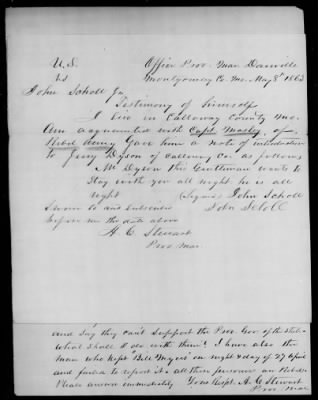 U.S. Office Prov. Mar Danville
vs Montgomery Co. Mo. May 8th 1863
John Scholl Jr
Testimony of himself
I live in Callaway County Mo.
Am acquainted with Capt. Mosley, of
Rebel Army Gave him a note of introduction
to Jerry Dyson of Callaway Co. as follows
Mr Dyson this Gentleman wants to
stay with you all night he is all
right (Signed) John Scholl
Sworn to and subscribed John Scholl
before me the date above
A. C. Stewart
Prov. Mar.
and say they can't support the Prov. Gov. of the State
what shall I do with them? I have also the
man who kept "Bill Myers" on night & day of 27 April
and failed to report it & all these persons are Rebels
Please answer immediately Yours Respt. A. C. Stewart
Prov. Mar